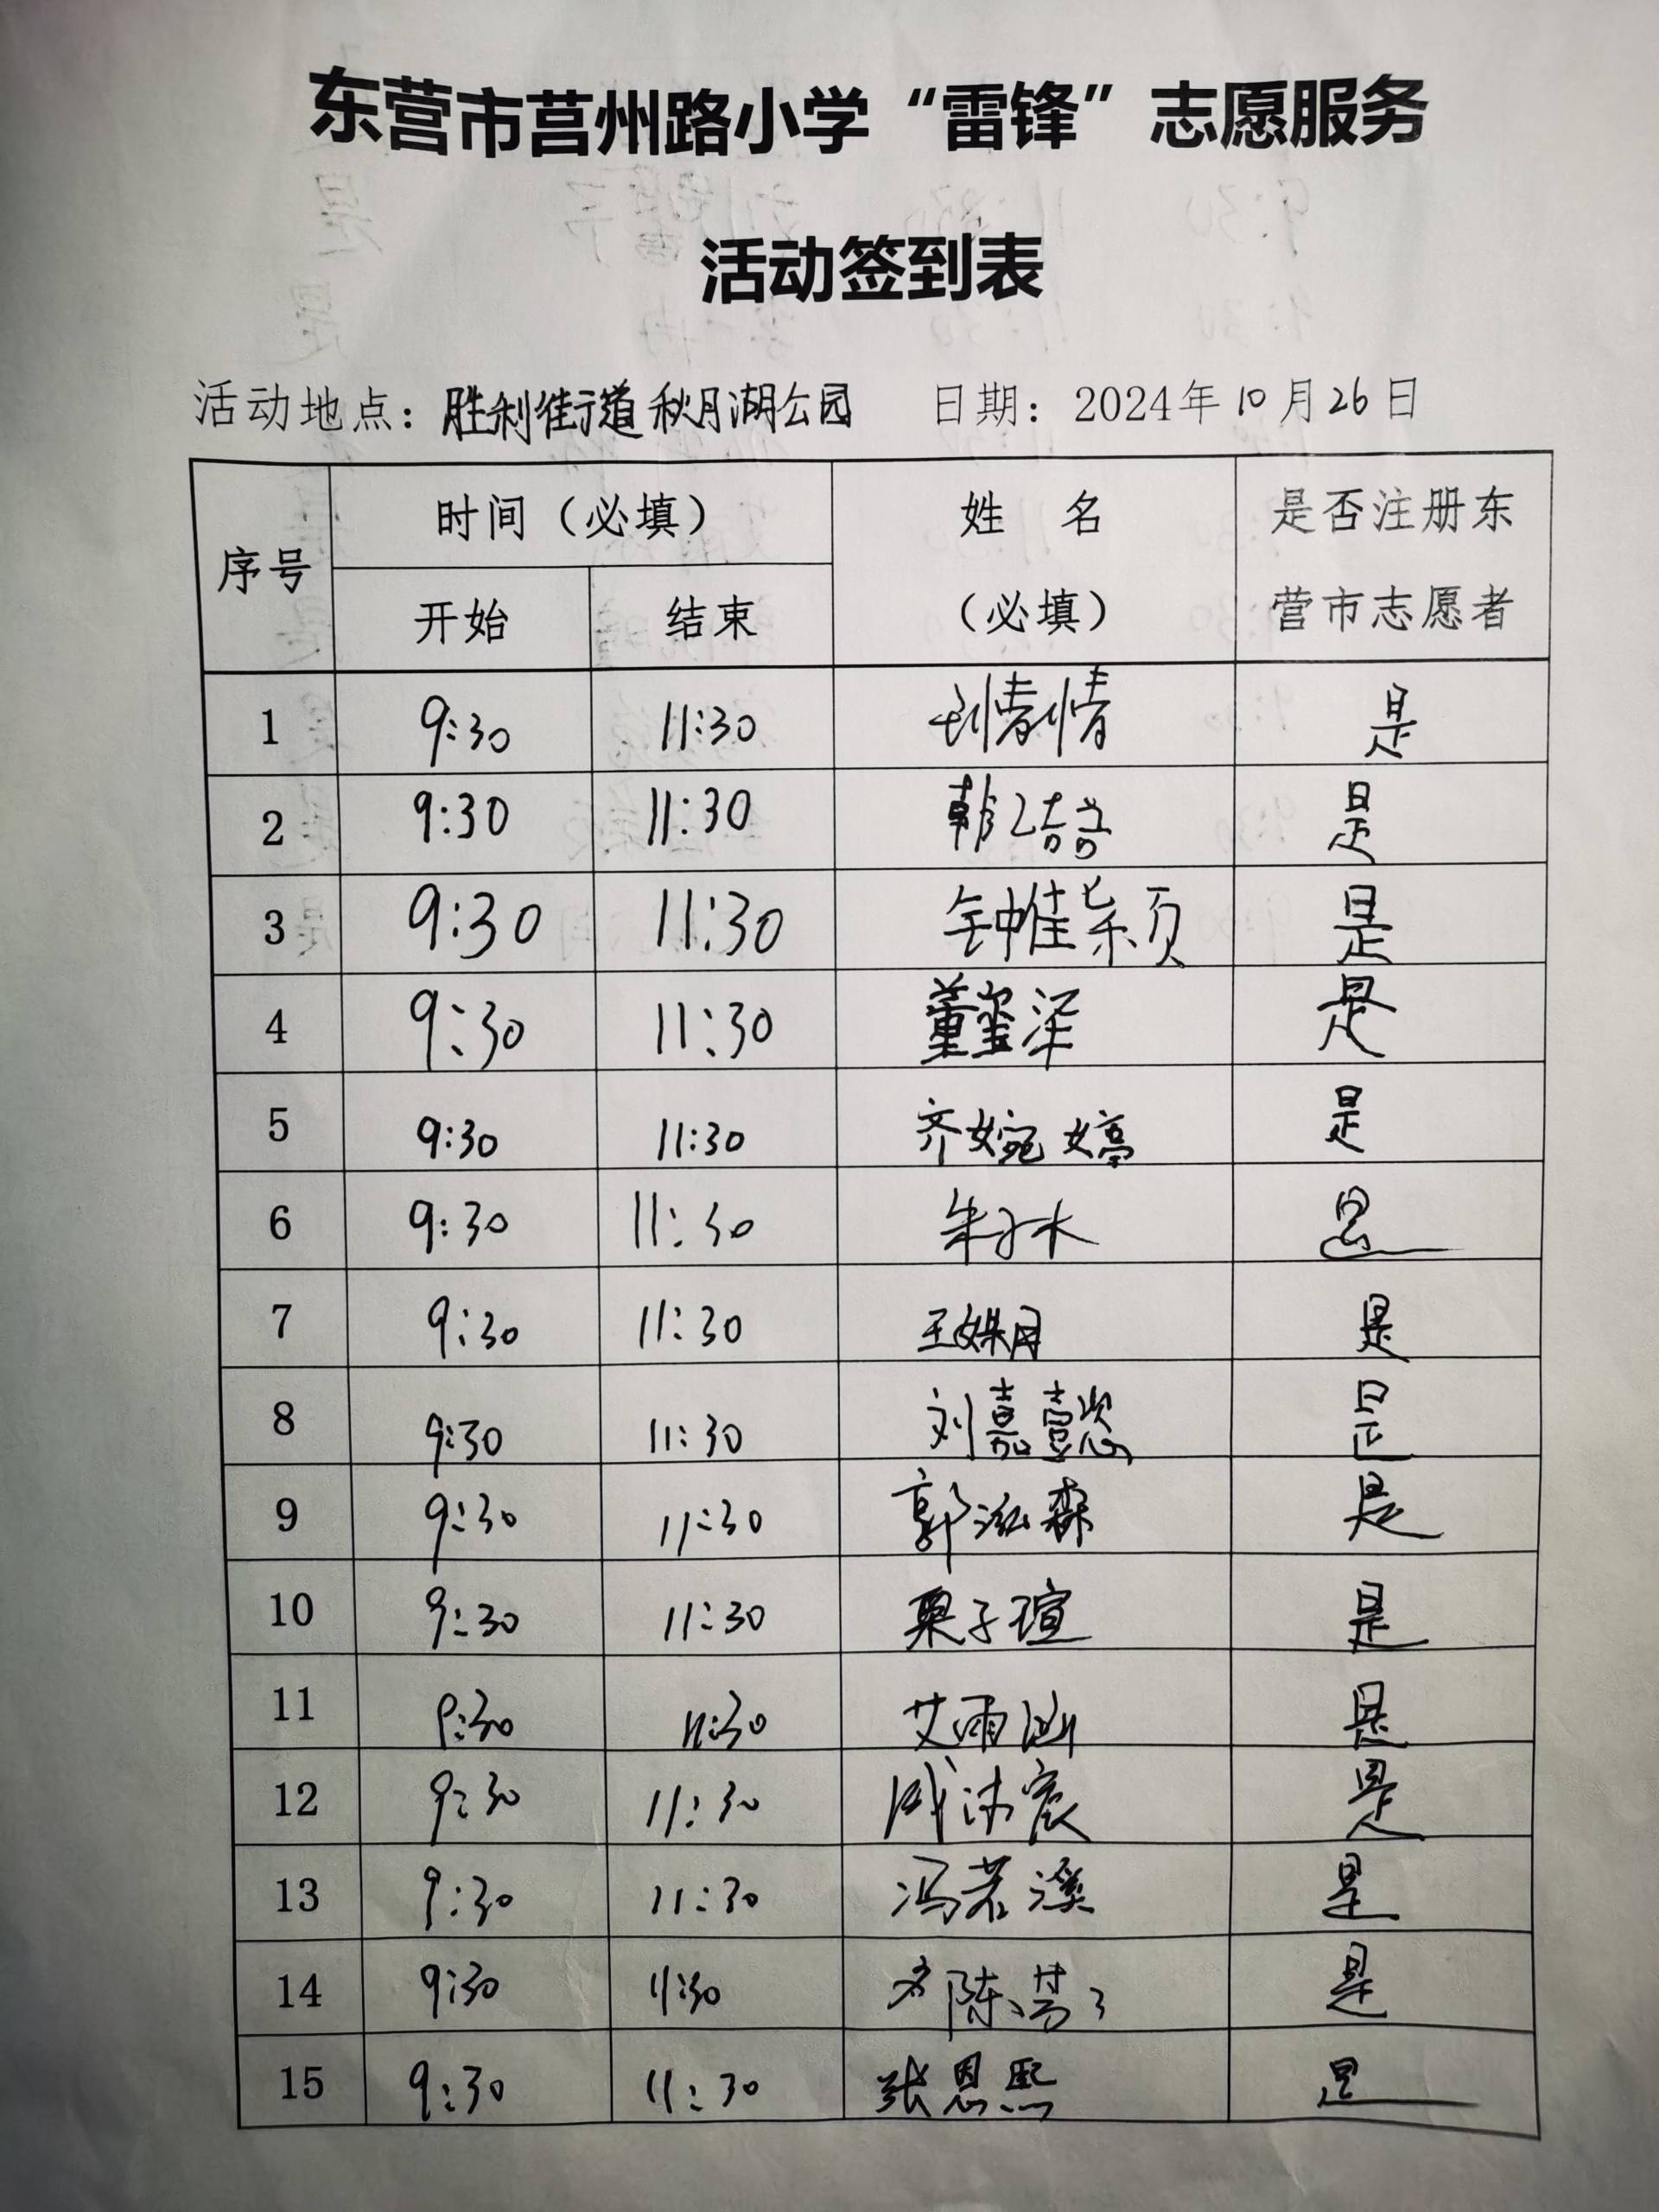 东营市莒州路小学“雷锋”志愿服务
活动签到表
活动地点：胜利街道秋月湖公园 日期：2024年10月26日
序号 时间（必填） 姓 名 是否注册东
开始 结束 （必填） 营市志愿者
1 9:30 11:30 是
2 9:30 11:30 韩 是
3 9:30 11:30 钟佳颖 是
4 9:30 11:30 董玺泽 是
5 9:30 11:30 齐婉婷 是
6 9:30 11:30 朱子木 是
7 9:30 11:30 王媒月 是
8 9:30 11:30 刘嘉懿 是
9 9:30 11:30 郭泓森 是
10 9:30 11:30 栗子瑄 是
11 9:30 11:30 艾雨汕 是
12 9:30 11:30 宸 是
13 9:30 11:30 冯若溪 是
14 9:30 11:30 陈 是
15 9:30 11:30 张恩熙 是